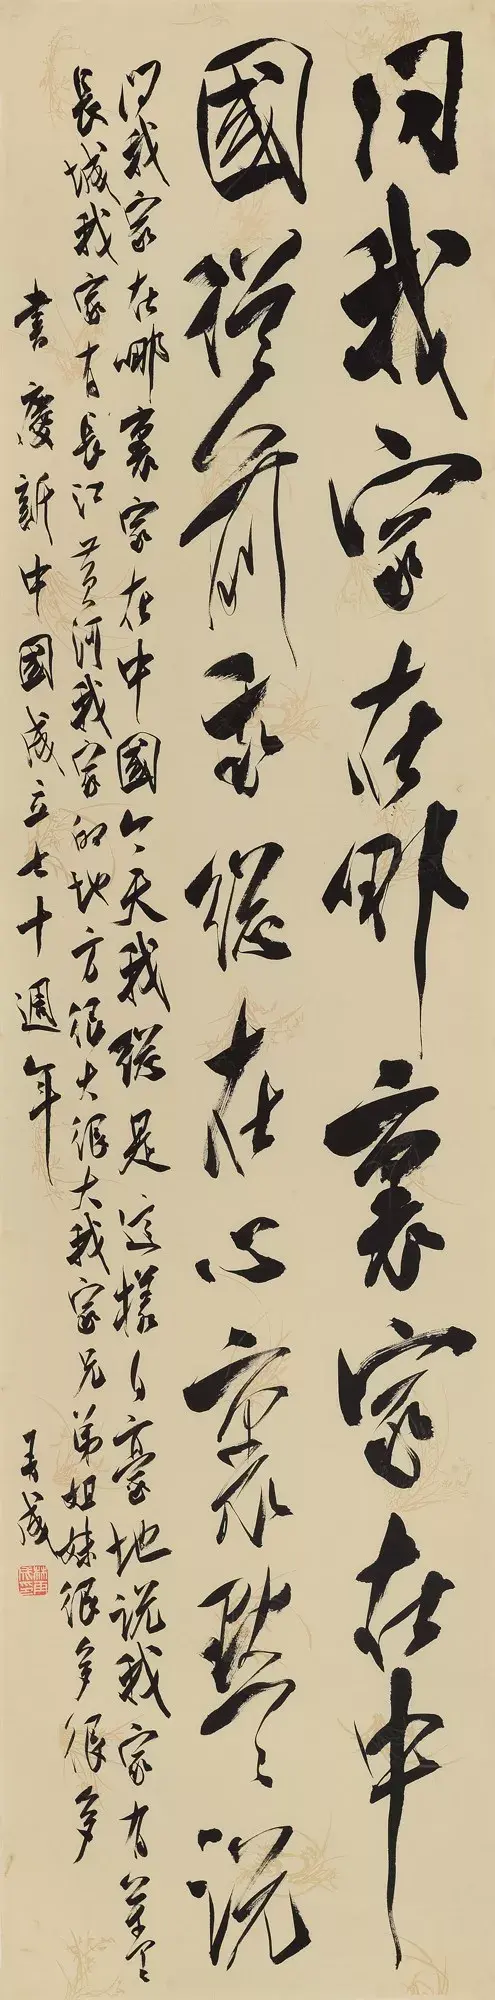 問我家在哪裏家在中
國從前我總在心裏默々說
問我家在哪裏家在中國今天我總是這樣自豪地說我家有萬里
長城我家有長江黃河我家的地方很大很大我家兄弟姐妹很多很多
書慶新中國成立七十週年
再成